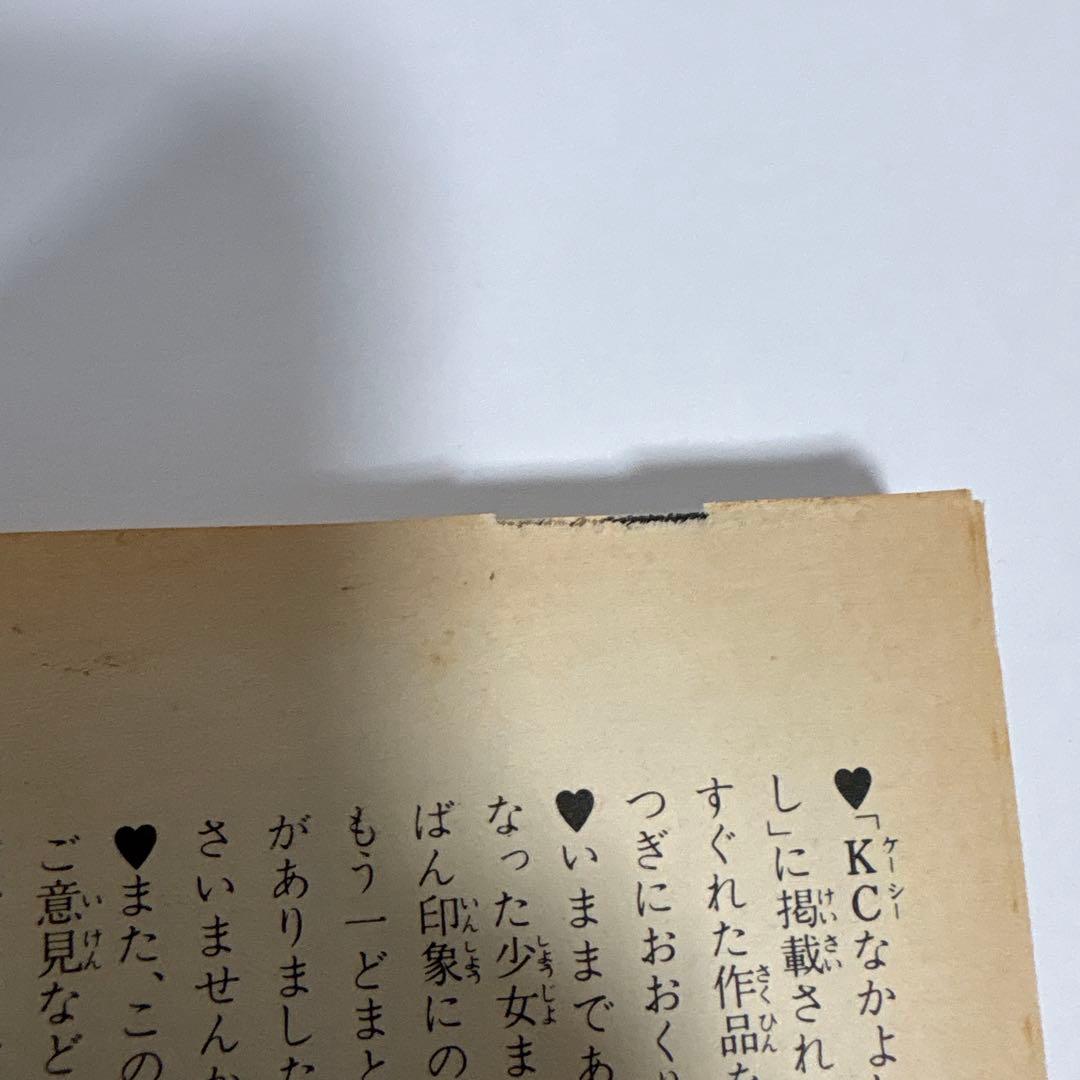 ♥「KCなかよ
し」に掲載され
すぐれた作品
つぎにおおく
♥いままであ
なった少女ま
ばん印象にの
もう一どまと
がありました
さいません
♥また、この
ご意見など